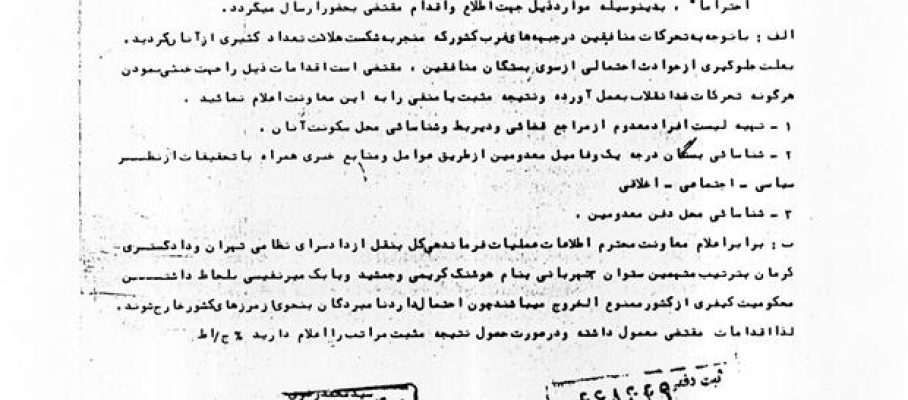 احتراما" ، بدینوسیله موارد ذیل جهت اطلاع واقدام مقتضی بحضور ارسال میگردد.
الف : باتوجه به تحرکات منافقین درجبهه های غرب کشور که منجر به شکست هلاکت تعداد کثیری از آنان گردید.
بعلت جلوگیری از حوادث احتمالی ازسوی بستگان منافقین ، مقتضی است اقدامات ذیل را جهت خنثی نمودن
هرگونه تحرکات ضدانقلاب بعمل آورده ونتیجه مثبت یا منفی را به این معاونت اعلام نمائید .
۱ - تهیه لیست افراد معدوم از مراجع قضائی وذیربط وشناسائی محل سکونت آنان .
۲ - شناسائی بستگان درجه یک وفامیل معدومین ازطریق عوامل ومنابع خبری همراه باتحقیقات ازنظر
سیاسی - اجتماعی - اخلاقی
۳ - شناسائی محل دفن معدومین .
ب : برابر اعلام معاونت محترم اطلاعات عملیات فرماندهی کل بنقل ازدادسرای نظامی تهران ودادگستری
کرمان بترتیب متهمین ستوان شهربانی بنام هوشنگ کریمی وجمشید وبابک میرنفیسی بلحاظ داشتن
محکومیت کیفری از کشور ممنوع الخروج میباشند چون احتمال دارد نامبردگان بنحوی از مرزهای کشور خارج شوند.
لذا اقدامات مقتضی معمول داشته ودرصورت حصول نتیجه مثبت مراتب را اعلام دارید % ج/اط
ثبت دفتر